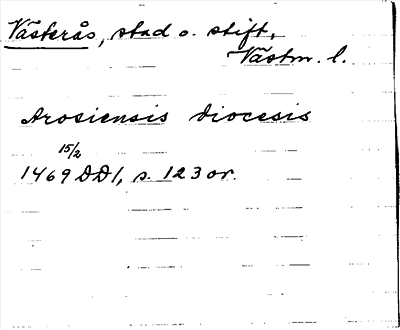 Västerås, stad o. stift,
Västm. l.
Arosiensis diocesis
15/2
1469 DD1, s. 123 or.